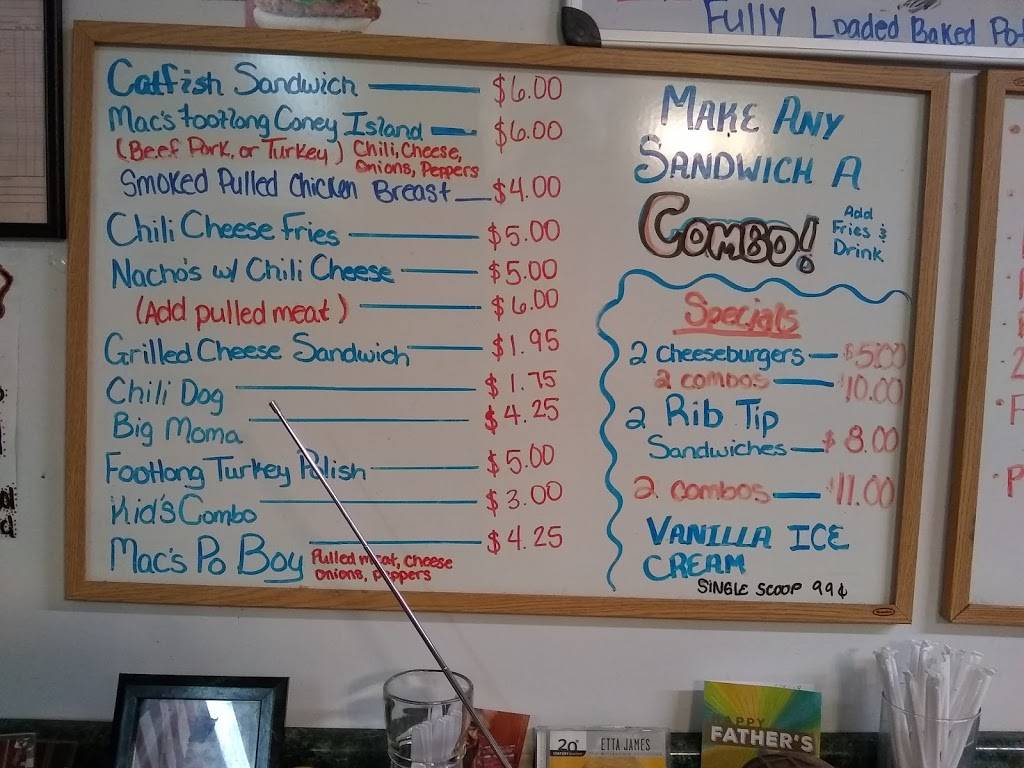 Fully Loaded Baked Pot
Catfish Sandwich $6.00
Mac's footlong Coney Island $6.00
(Beef Pork, or Turkey) Chili, Cheese,
Onions, Peppers
Smoked Pulled Chicken Breast $4.00
Chili Cheese Fries $5.00
Nacho's w/ Chili Cheese $5.00
(Add pulled meat) $6.00
Grilled Cheese Sandwich $1.95
Chili Dog $1.75
Big Moma $4.25
Footlong Turkey Polish $5.00
Kid's Combo $3.00
Mac's Po Boy $4.25
Pulled meat, cheese
onions, peppers
Make Any
Sandwich A
Combo!
Add
Fries &
Drink
Specials
2 cheeseburgers $5.00
2 combos $10.00
2 Rib Tip
Sandwiches $8.00
2 combos $11.00
Vanilla Ice
Cream
Single Scoop 99¢
20th
ETTA JAMES
HAPPY
FATHER'S